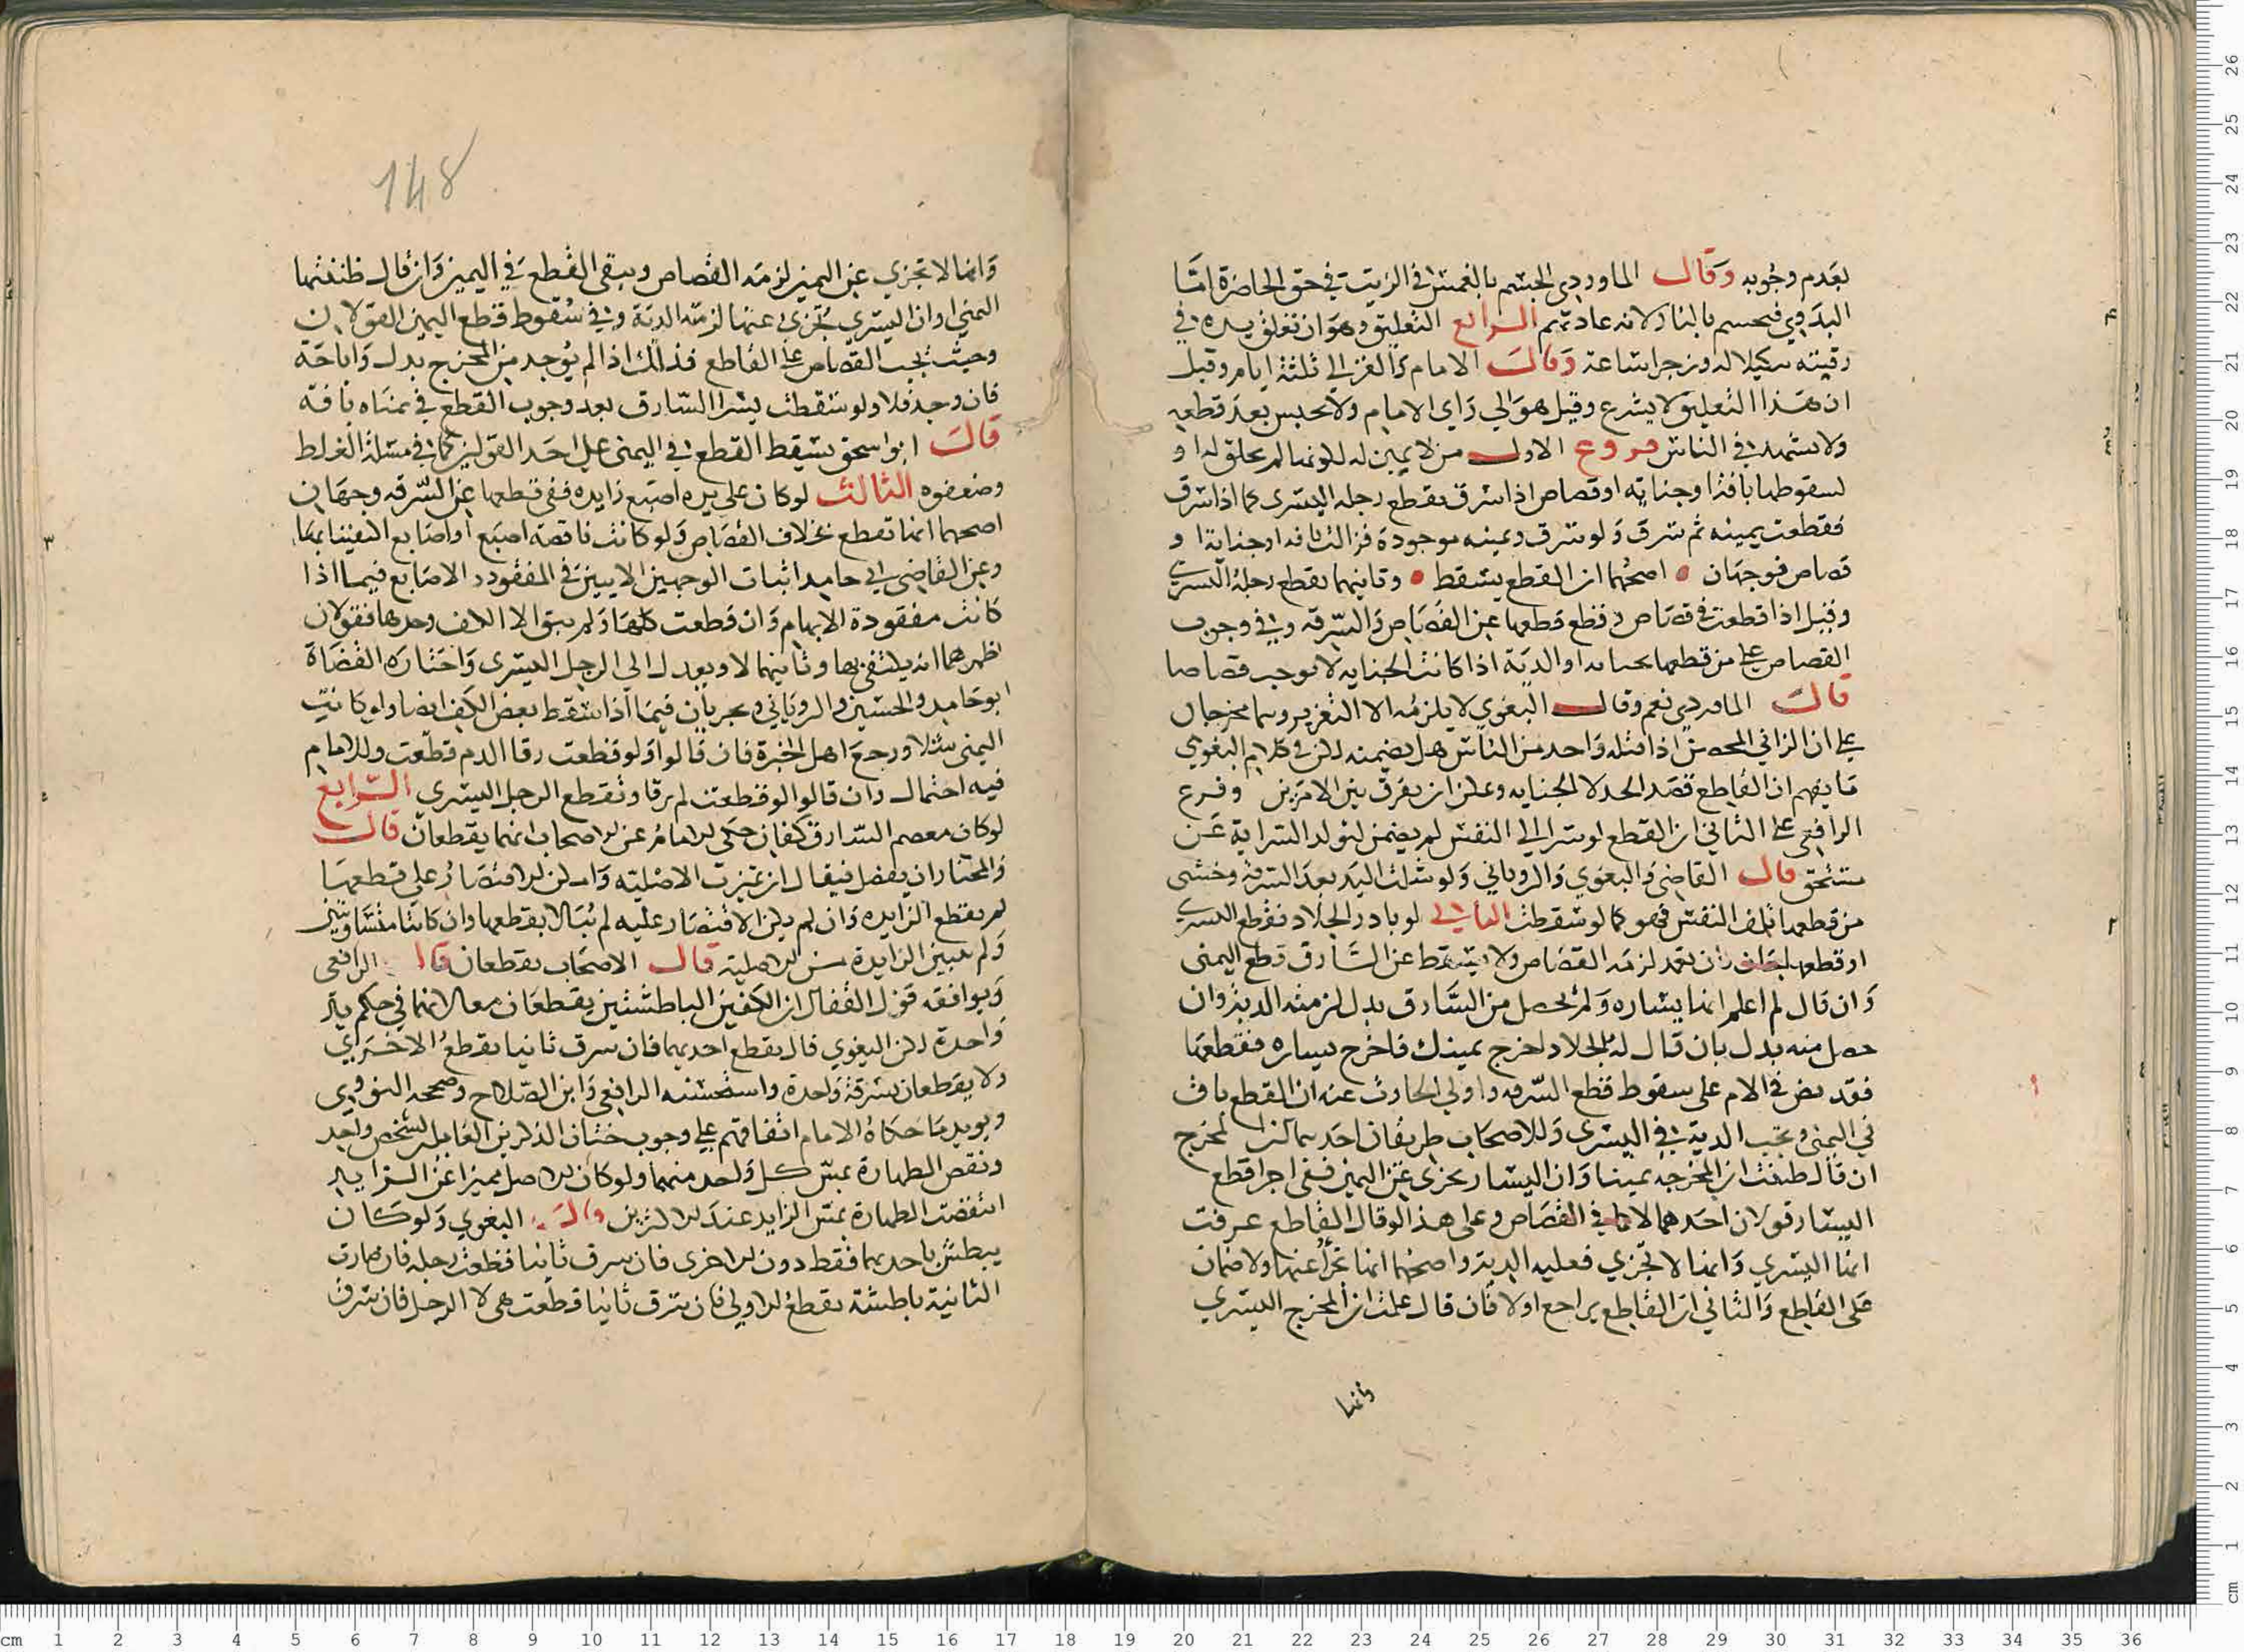 لعدم وجوبه وقال الماوردي الحسم بالغمس في الزيت في حق الحاضرة اما
البدوي فيحسم بالنار لانه عادتهم الرابع التعليق وهو ان تعلق يده في
رقبته تنكيلا له وزجرا ساعة وقال الامام والغزالي ثلثة ايام وقيل
ان هذا التعليق لا يشرع وقيل هو الي راي الامام ولا يحبس بعد قطعه
ولا يشهد في الناس فروع الاول من لا يمين له لكونها لم تخلق له او
لسقوطها بافة او جناية او قصاص اذا سرق تقطع رجله اليسرى كما اذا سرق
فقطعت يمينه ثم سرق ولو سرق ويمينه موجودة فزالت بافة او جناية او
قصاص فوجهان اصحهما ان القطع يسقط وثانيهما تقطع رجله اليسرى
وقيل اذا قطعت في قصاص وقع قطعها عن القصاص والسرقه وفي وجوب
القصاص علي من قطعها بجناية او الدية اذا كانت الجنايه لا توجب قصاصا
قال الماوردي نعم وقال البغوي لا يلزمه الا التعزير وهما مخرجان
علي ان الزاني المحصن اذا قتله واحد من الناس هل يضمنه لكن في كلام البغوي
ما يفهم ان القاطع قصد الحد لا الجنايه وعلن ان يفرق بين الامرين وفرع
الرافعي علي الثاني ان القطع لو سرا الي النفس لم يضمن لتولد السراية عن
مستحق قال القاضي والبغوي والروياني ولو شلت اليد بعد السرقة وخشي
من قطعها تلف النفس فهو كما لو سقطت الثاني لو بادر الجلاد فقطع اليسرى
او قطعها ان تعمد لزمه القصاص ولا يسقط عن السارق قطع اليمنى
وان قال لم اعلم انها يساره ولم يحصل من السارق بدل لزمته الدية وان
حصل منه بدل بان قال له الجلاد اخرج يمينك فاخرج يساره فقطعها
فقد نص في الام على سقوط قطع السرقه واولي الحادث عنه ان القطع باق
في اليمنى وتجب الدية في اليسرى وللاصحاب طريقان احدهما كنز المخرج
ان قال ظننت ان المخرجه يمينا وان اليسار تجزى عن اليمين ففي اجرا قطع
اليسار قولان احدهما لا كما في القصاص وعلى هذا لو قال القاطع عرفت
انها اليسري وانها لا تجزي فعليه الدية واصحهما انها تجزأ عنها ولا ضمان
على القاطع والثاني ان القاطع يراجع اولا فان قال علمت ان المخرج اليسري
وانها
148
وانها لا تجزي عن اليمين لزمه القصاص ويبقى القطع في اليمين وان قال ظننتها
اليمني وان اليسري تجزئ عنها لزمته الدية وفي سقوط قطع اليمين القولان
وحيث يجب القصاص علي القاطع فذلك اذا لم يوجد من المخرج بدل واباحة
فان وجد فلا ولو سقطت يسرا السارق بعد وجوب القطع في يمناه بافة
قال ابو اسحق يسقط القطع في اليمنى على احد القولين كما في مسئلة الغلط
وضعفوه الثالث لو كان على يده اصبع زايده ففي قطعها عن السرقه وجهان
اصحهما انها تقطع بخلاف القصاص ولو كانت ناقصة اصبع او اصابع اكتفينا بها
وعن القاضي ابي حامد اثبات الوجهين الاتيين في المفقود الاصابع فيما اذا
كانت مفقودة الابهام وان قطعت كلها ولم يبق الا الكف وحدها فقولان
اظهرهما انه يكتفي بها وثانيهما لا ويعدل الى الرجل اليسرى واختاره القضاة
ابو حامد والحسين والروياني ويجريان فيما اذا سقط بعض الكف ايضا ولو كانت
اليمنى شلا ورجع اهل الخبرة فان قالوا ولو قطعت رقا الدم قطعت وللامام
فيه احتمال وان قالوا لو قطعت لم يرقا وتقطع الرجل اليسرى الرابع
لو كان معصم السارق كفان حكي الامام عن الاصحاب انهما يقطعان قال
والمختار ان يفصل فيقال ان تميزت الاصليه وامكن الاقتصار على قطعها
لم يقطع الزايده وان لم يكن الاقتصار عليه لم نبال بقطعها وان كانتا متساويتين
ولم تتبين الزايدة من الاصلية قال الاصحاب يقطعان قال الرافعي
ويوافقه قول القفال ان الكفين الباطشتين يقطعان معا لانهما في حكم يد
واحدة لكن البغوي قال يقطع احديهما فان سرق ثانيا يقطع الاخرى
ولا يقطعان بسرقة واحدة واستحسنه الرافعي وابن الصلاح وصححه النووي
ويويد ما حكاه الامام اتفاقهم علي وجوب ختان الذكرين العاملين لشخص واحد
ونقض الطهارة بمس كل واحد منهما ولو كان الاصل مميزا عن الزايد
انتقضت الطهارة بمس الزايد عند الاكثرين قال البغوي ولو كان
يبطش باحديهما فقط دون الاخرى فان سرق ثانيا قطعت رجله فان صارت
الثانية باطشة تقطع الاولي فان سرق ثانيا قطعت هي لا الرجل فان سرق